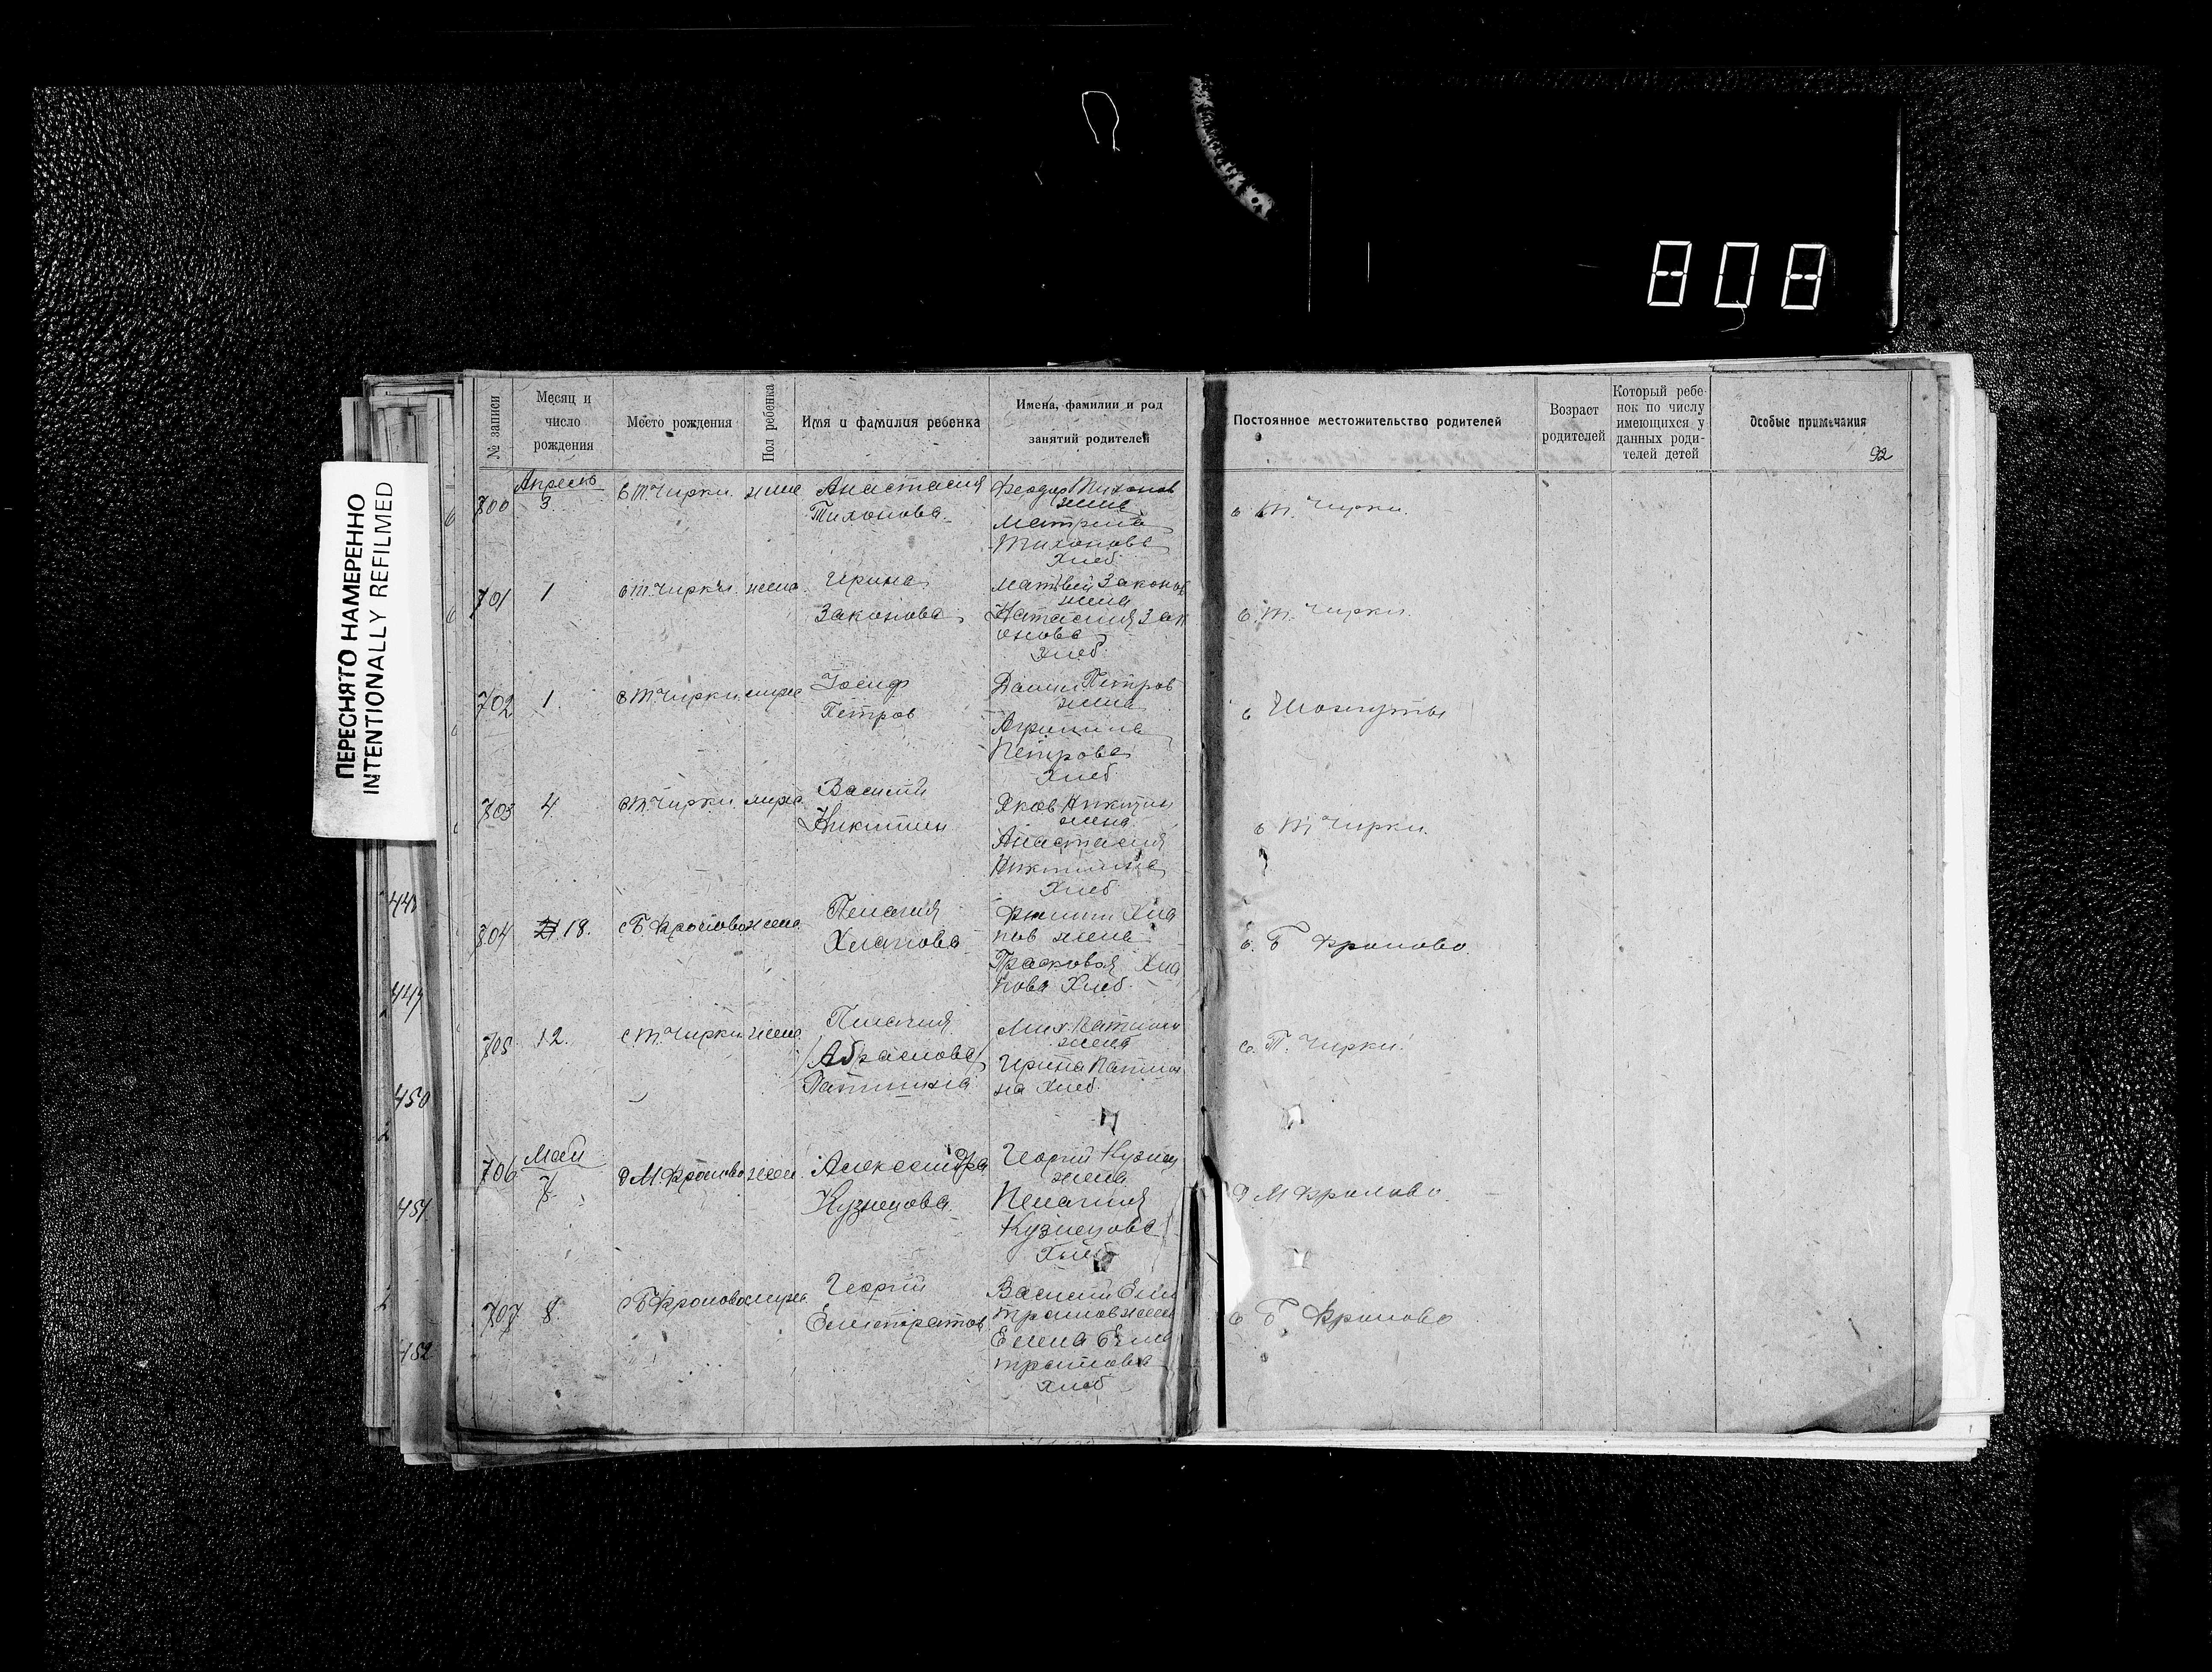 808
ПЕРЕСНЯТО НАМЕРЕННО
INTENTIONALLY REFILMED
№ записи
Месяц и число рождения
Место рождения
Пол ребенка
Имя и фамилия ребенка
Имена, фамилии и род занятий родителей
Постоянное местожительство родителей
Возраст родителей
Который ребе-
нок по числу
имеющихся у
данных роди-
телей детей
Особые примечания
92
Апрель
700 3. с Т. Чирки. жен Анастасия Феодор Тихонов
Тихонова жена
Матрина
Тихонова
Хлеб.
с Т. Чирки.
701 1 с Т. Чирки. жен. Ирина Матвей Законов
жена
Законова Наталия Зак
онова
Хлеб.
с Т. Чирки.
702 1. с Т. Чирки. муж Иосиф Данил Петров
Петров жена
Агрипина
Петрова
Хлеб.
703 4. с Т. Чирки. муж Василий
Никитин Яков Никитин
жена
Анастасия
Никитина
Хлеб
с Т. Чирки.
704 18. с Б. Фролово жен Пелагия Филипп Хла
Хлапова пов жена
Прасковья Хла
пова Хлеб.
с. Б Фролово.
705 12. с Т. Чирки. жен. Пелагия Мих. Патшин
/Абрамова/ жена
Патшина Ирина Патши
на Хлеб.
с. Т. Чирки.
Май
706 7. д М. Фролово жен. Александра Георгий Кузнец
жена
Кузнецова. Пелагия
Кузнецова
Хлеб
д М Фролово.
707 8. с Б Фролово муж. Георгий ВасилийЕли
Елистратов
Елена
Хлеб
с Б. Фролово
448
449
450
451.
452